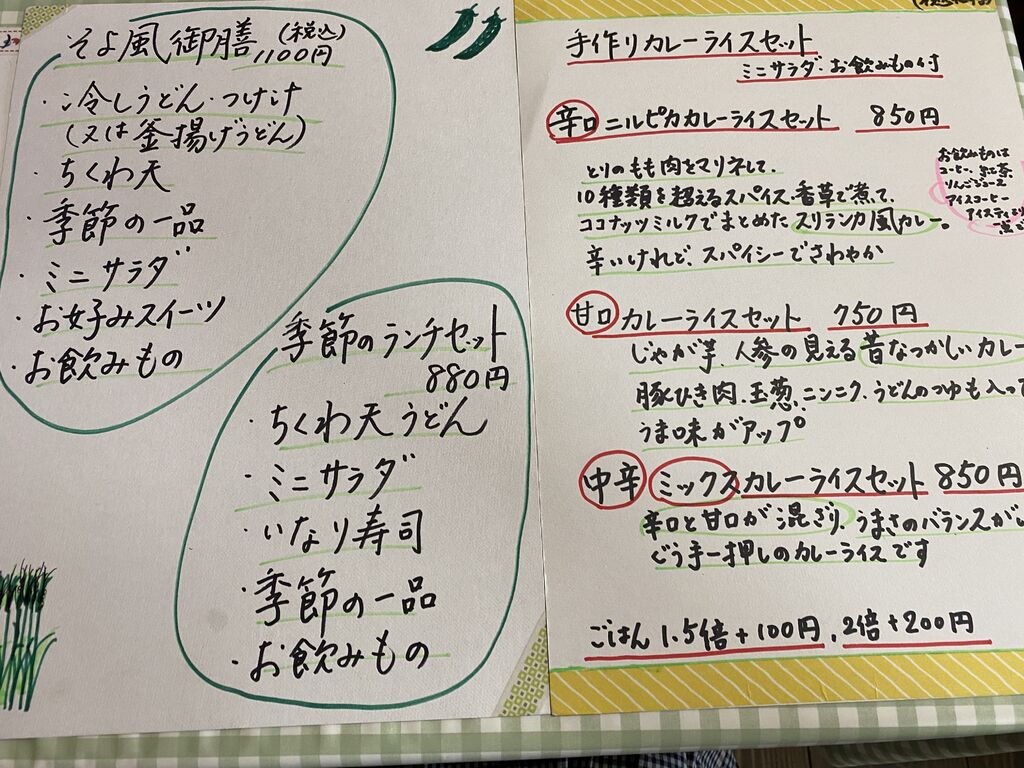 そよ風御膳 (税込)
1100円
・冷しうどん・つけ汁
(又は釜揚げうどん)
・ちくわ天
・季節の一品
・ミニサラダ
・お好みスイーツ
・お飲みもの
季節のランチセット
880円
・ちくわ天うどん
・ミニサラダ
・いなり寿司
・季節の一品
・お飲みもの
手作りカレーライスセット
ミニサラダ・お飲みもの付
辛口 ニルピカカレーライスセット 850円
とりのもも肉をマリネして、
10種類を超えるスパイス、香草で煮て、
ココナッツミルクでまとめたスリランカ風カレー。
辛いけれど、スパイシーでさわやか
お飲みものは
コーヒー、紅茶
りんごジュース
アイスコーヒー
アイスティ
甘口 カレーライスセット 750円
じゃが芋、人参の見える昔なつかしいカレー
豚ひき肉、玉葱、ニンニク、うどんのつゆも入って
うま味がアップ
中辛 ミックスカレーライスセット 850円
辛口と甘口が混ざり、うまさのバランスが
ぐう手一押しのカレーライスです
ごはん 1.5倍+100円、2倍+200円